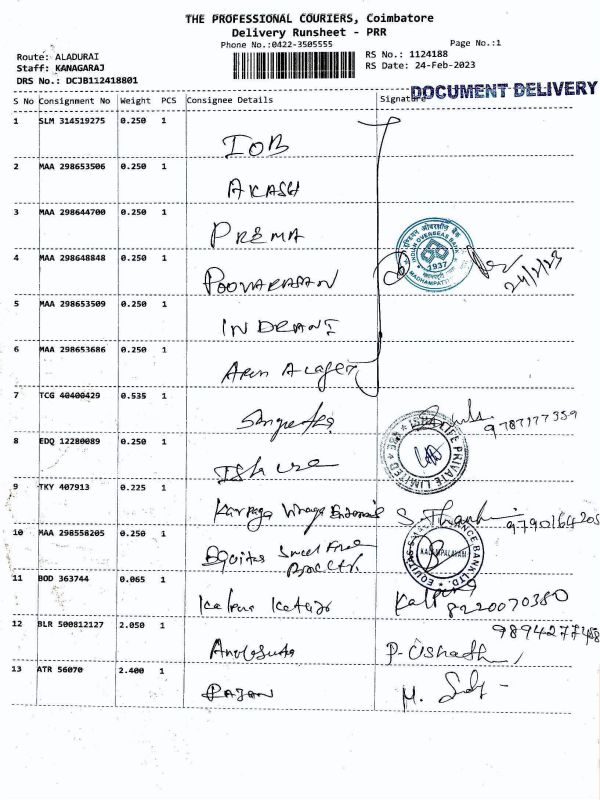 THE PROFESSIONAL COURIERS, Coimbatore
Delivery Runsheet - PRR
Phone No.:0422-3505555
Page No.:1
Route: ALADURAI
RS No.: 1124188
Staff: KANAGARAJ
RS Date: 24-Feb-2023
DRS No.: DCJB112418801
DOCUMENT DELIVERY
S No Consignment No Weight PCS Consignee Details Signature
1 SLM 314519275 0.250 1
IOB
2 MAA 298653506 0.250 1
AKASH
3 MAA 298644700 0.250 1
PREMA
4 MAA 298648848 0.250 1
POOVARASAN
INDIAN OVERSEAS BANK
1937
24/2/23
5 MAA 298653509 0.250 1
INDRANI
6 MAA 298653686 0.250 1
Arun
7 TCG 40400429 0.535 1
9787177359
8 EDQ 12280089 0.250 1
Isha
LIFE PRIVATE LIMITED
9 TKY 407913 0.225 1
Karpaga
10 MAA 298558205 0.250 1
Equitas Small
EQUITAS BANK LTD.
11 BOD 363744 0.065 1
8220070380
12 BLR 500812127 2.050 1
P. Ushadh
13 ATR 56070 2.400 1
RAJAN
M.